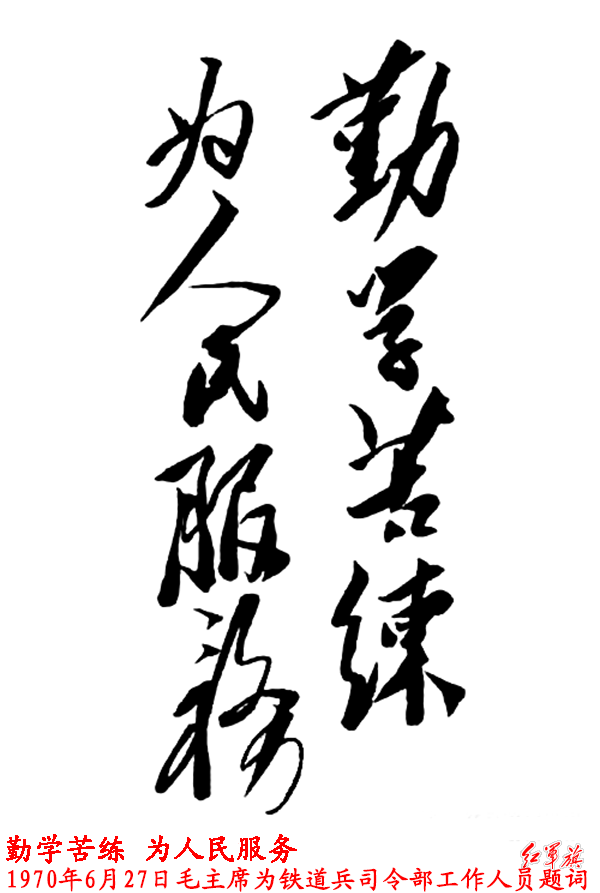 勤学苦练
为人民服務
勤学苦练 为人民服务
红军旗
1970年6月27日毛主席为铁道兵司令部工作人员题词